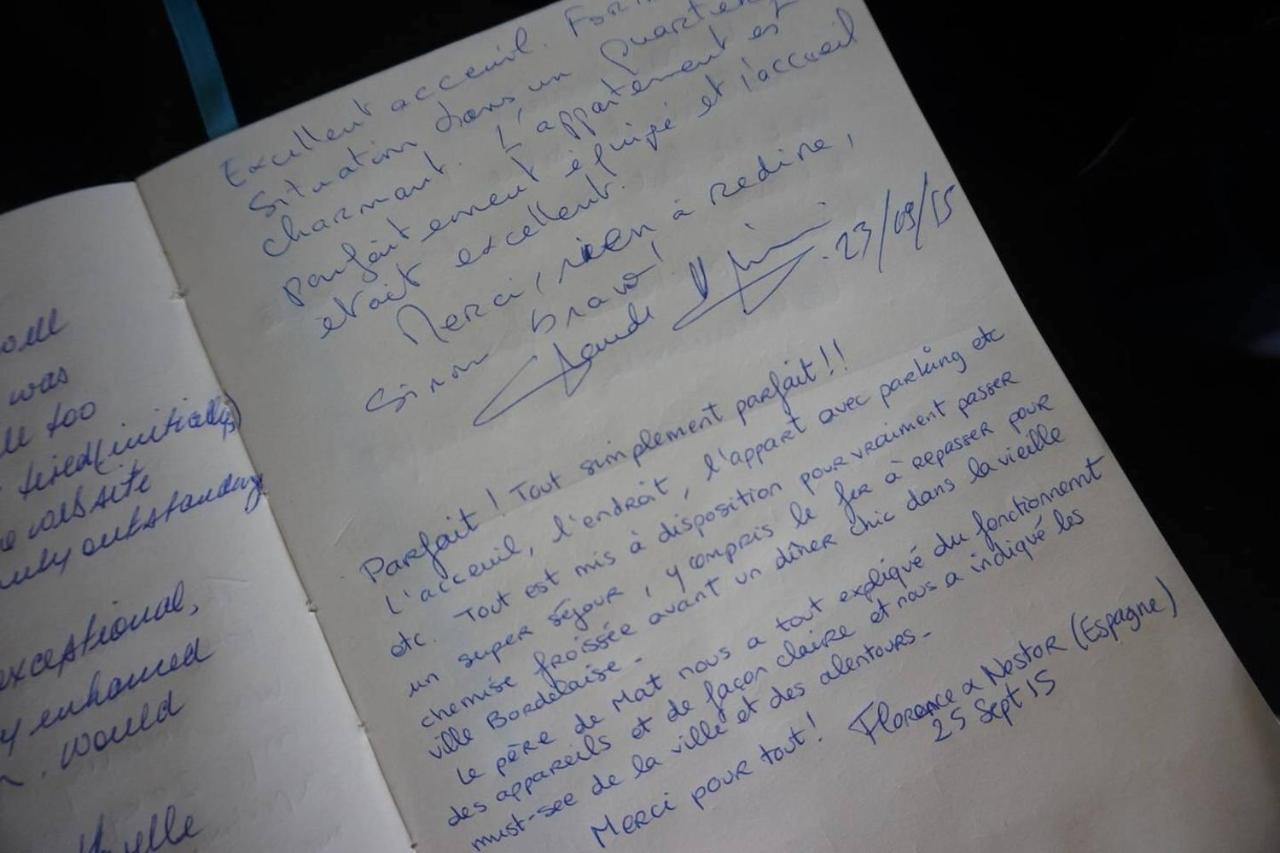 oell
was
too
tired (initially)
website
outstanding
exceptional,
y enhanced
would
Excellent acceuil. For
Situation dans un quartier
charmant. L'appartement est
parfaitement équipé et l'accueil
etait excellent.
Merci, rien à redire,
Sinon bravo!
23/09/15
Parfait! Tout simplement parfait!!
L'acceuil, l'endroit, l'appart avec parking etc
etc. Tout est mis à disposition pour vraiment passer
un super séjour, y compris le fer à repasser pour
chemise froissée avant un dîner chic dans la vieille
ville Bordelaise.
Le père de Mat nous a tout expliqué du fonctionnement
des appareils et de façon claire et nous a indiqué les
must-see de la ville et des alentours.
Merci pour tout! Florence & Nestor (Espagne)
25 Sept 15